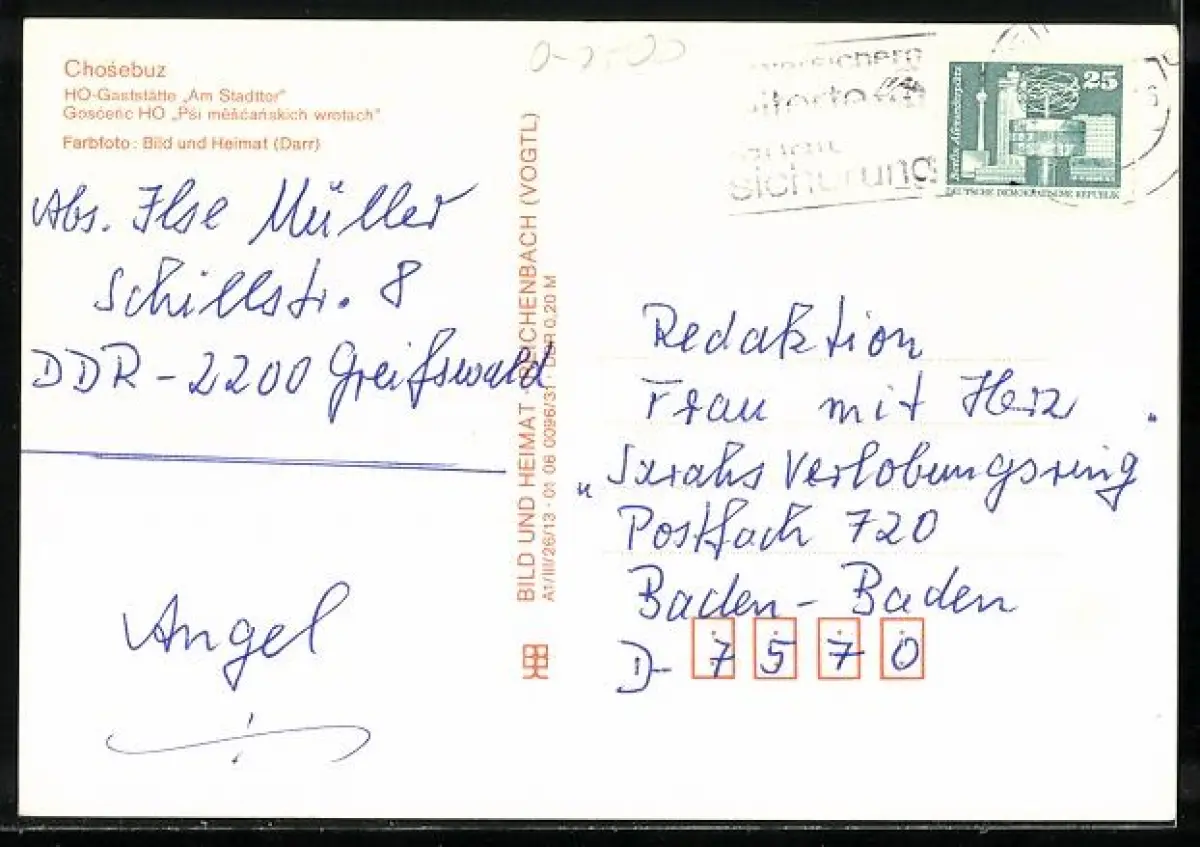 Chośebuz
HO-Gaststätte „Am Stadttor"
Gosćeńc HO „Pśi měšćańskich wrotach"
Farbfoto: Bild und Heimat (Darr)
Abs. Ilse Müller
Schillstr. 8
DDR - 2200 Greifswald
Angel
BILD UND HEIMAT REICHENBACH (VOGTL)
A1/III/26/13 · 01 06 0096/31 · DDR 0,20 M
sicherung
25
Berlin, Alexanderplatz
DEUTSCHE DEMOKRATISCHE REPUBLIK
Redaktion
Frau mit Herz
„Sarahs Verlobungsring"
Postfach 720
Baden-Baden
D-7570